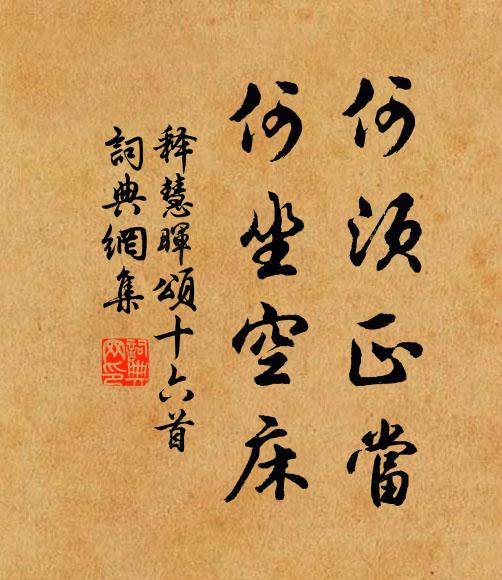 何須正當
何坐空床
释慧暉頌十六首
詞典網集
詞典網印